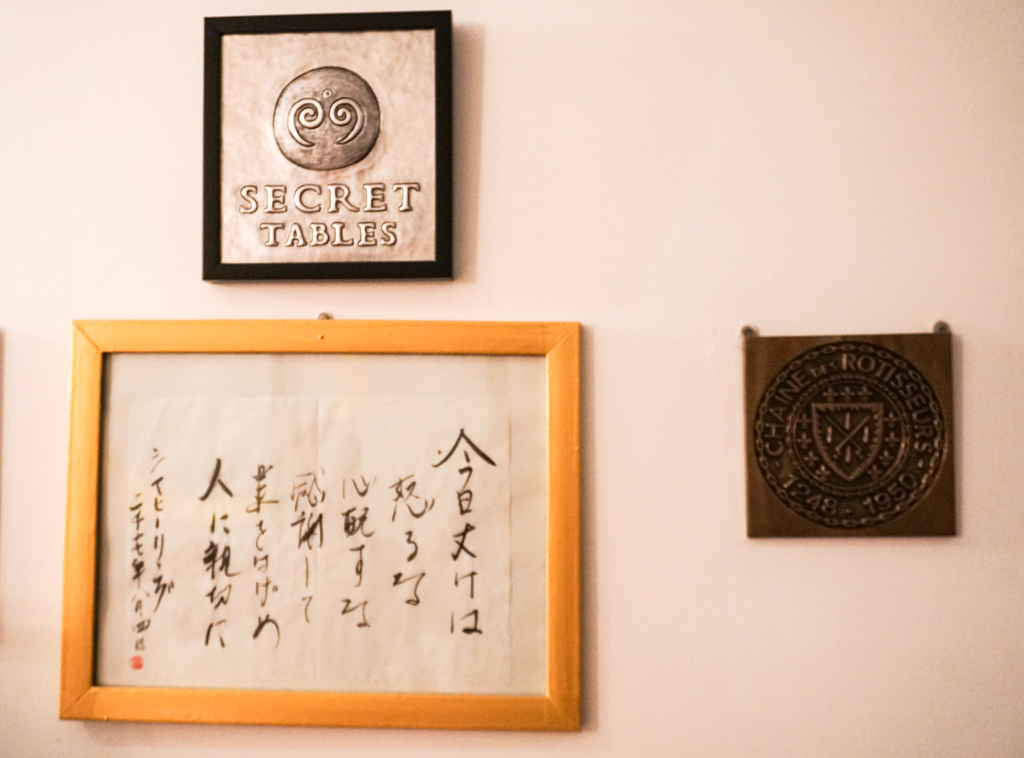 SECRET
TABLES
今日丈けは
怒るな
心配すな
感謝して
業をはげめ
人に親切に
二千七年八月四日
CHAINE DES ROTISSEURS
1248 - 1950